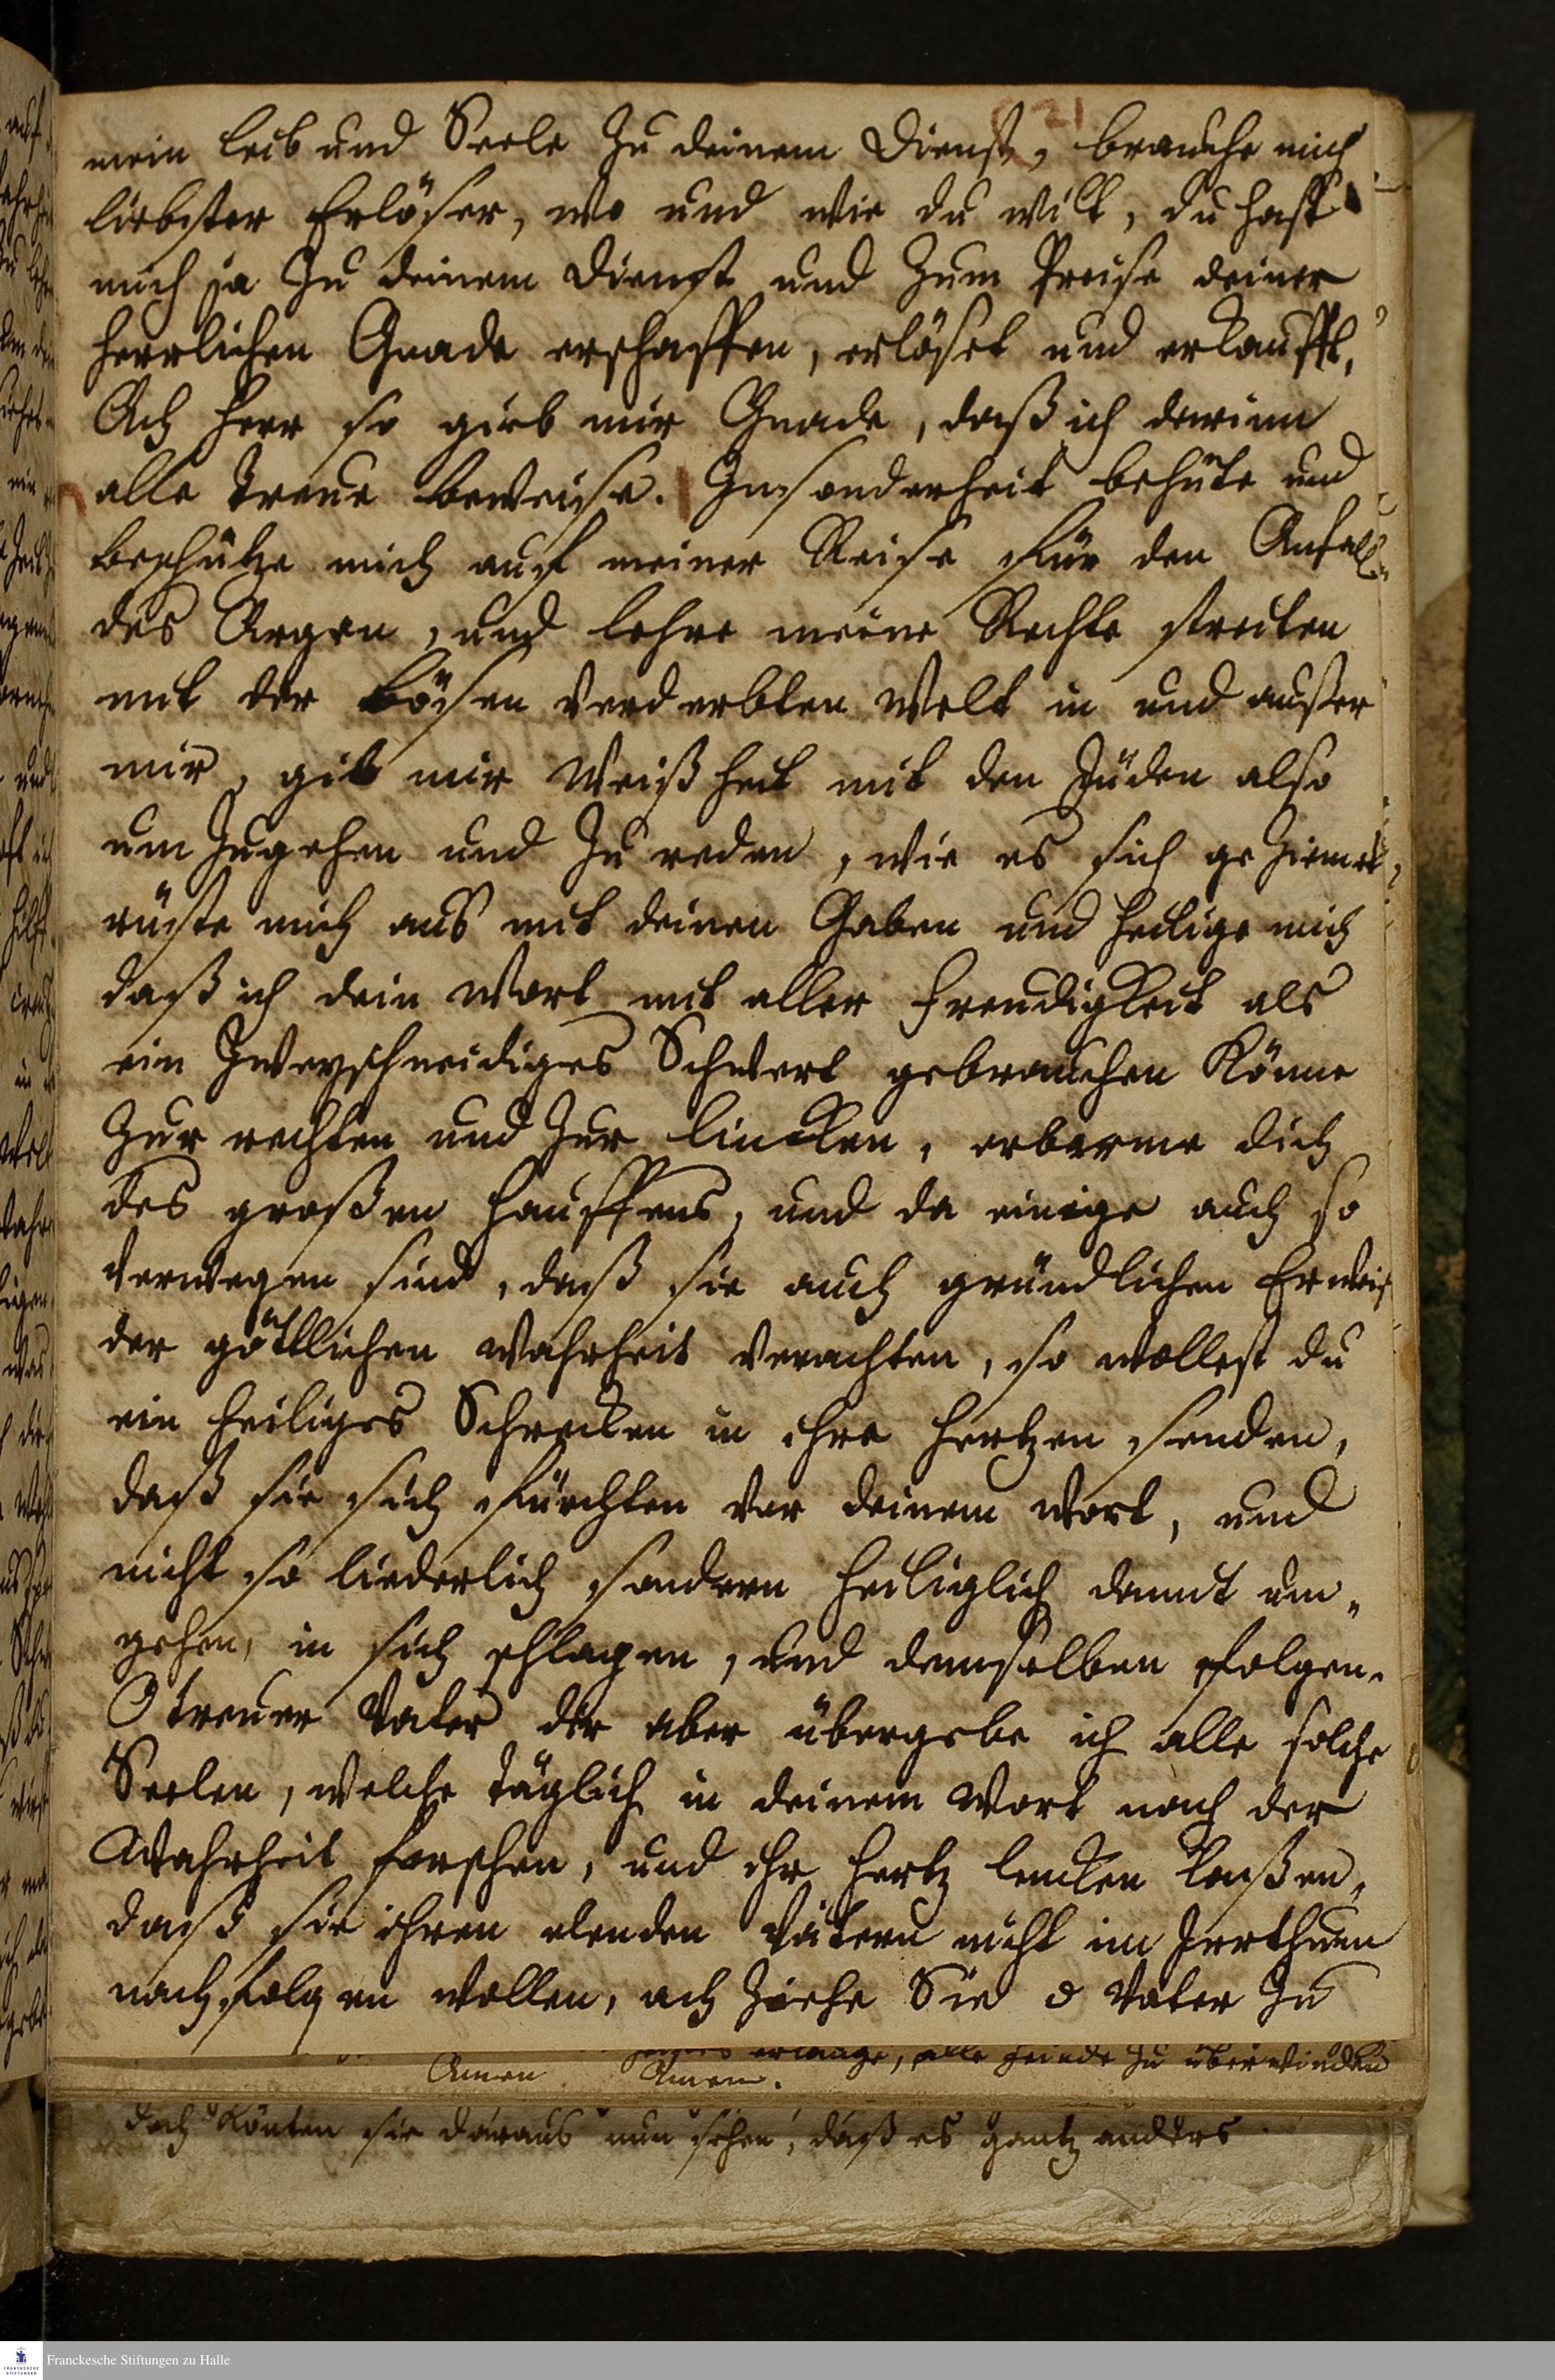 21
mein leib und Seele zu deinem Dienst, brauche mich
liebster Erlöser, wo und wie du wilt, du hast
mich ja zu deinem Dienst und zum Preise deiner
herrlichen Gnade erschaffen, erlöset und erkaufft,
Ach Herr so gieb mir Gnade, daß ich darinn
alle Treue beweise. Insonderheit behüte und
beschütze mich auf meiner Reise für den Anfall
des Argen, und lehre meine Rechte streiten
mit der bösen verderbten Welt in und außer
mir, gib mir Weißheit mit den Jüden also
um zugehen und zu reden, wie es sich geziemet,
rüste mich aus mit deinen Gaben und heilige mich
daß ich dein Wort mit aller Freudigkeit als
ein zweyschneidiges Schwert gebrauchen könne
zur rechten und zur lincken, erbarme dich
des großen Hauffens, und da einige auch so
verwegen sind, daß sie auch gründlichen Erweis
der göttlichen Wahrheit verachten, so wollest du
ein heiliges Schrecken in ihre Hertzen senden,
daß sie sich fürchten vor deinem Wort, und
nicht so liederlich sondern heiliglich damit um„
gehen, in sich schlagen, und demselben folgen.
O treuer Vater dir aber übergebe ich alle solche
Seelen, welche täglich in deinem Wort nach der
Wahrheit forschen, und ihr Hertz lencken laßen,
daß sie ihren elenden Vätern nicht im Irrthum
nachfolgen wollen, ach ziehe Sie o Vater zu
erlange, alle Feinde zu überwinden
Amen Amen.
doch könten sie daraus nun sehen, daß es gantz anders
Franckesche Stiftungen zu Halle